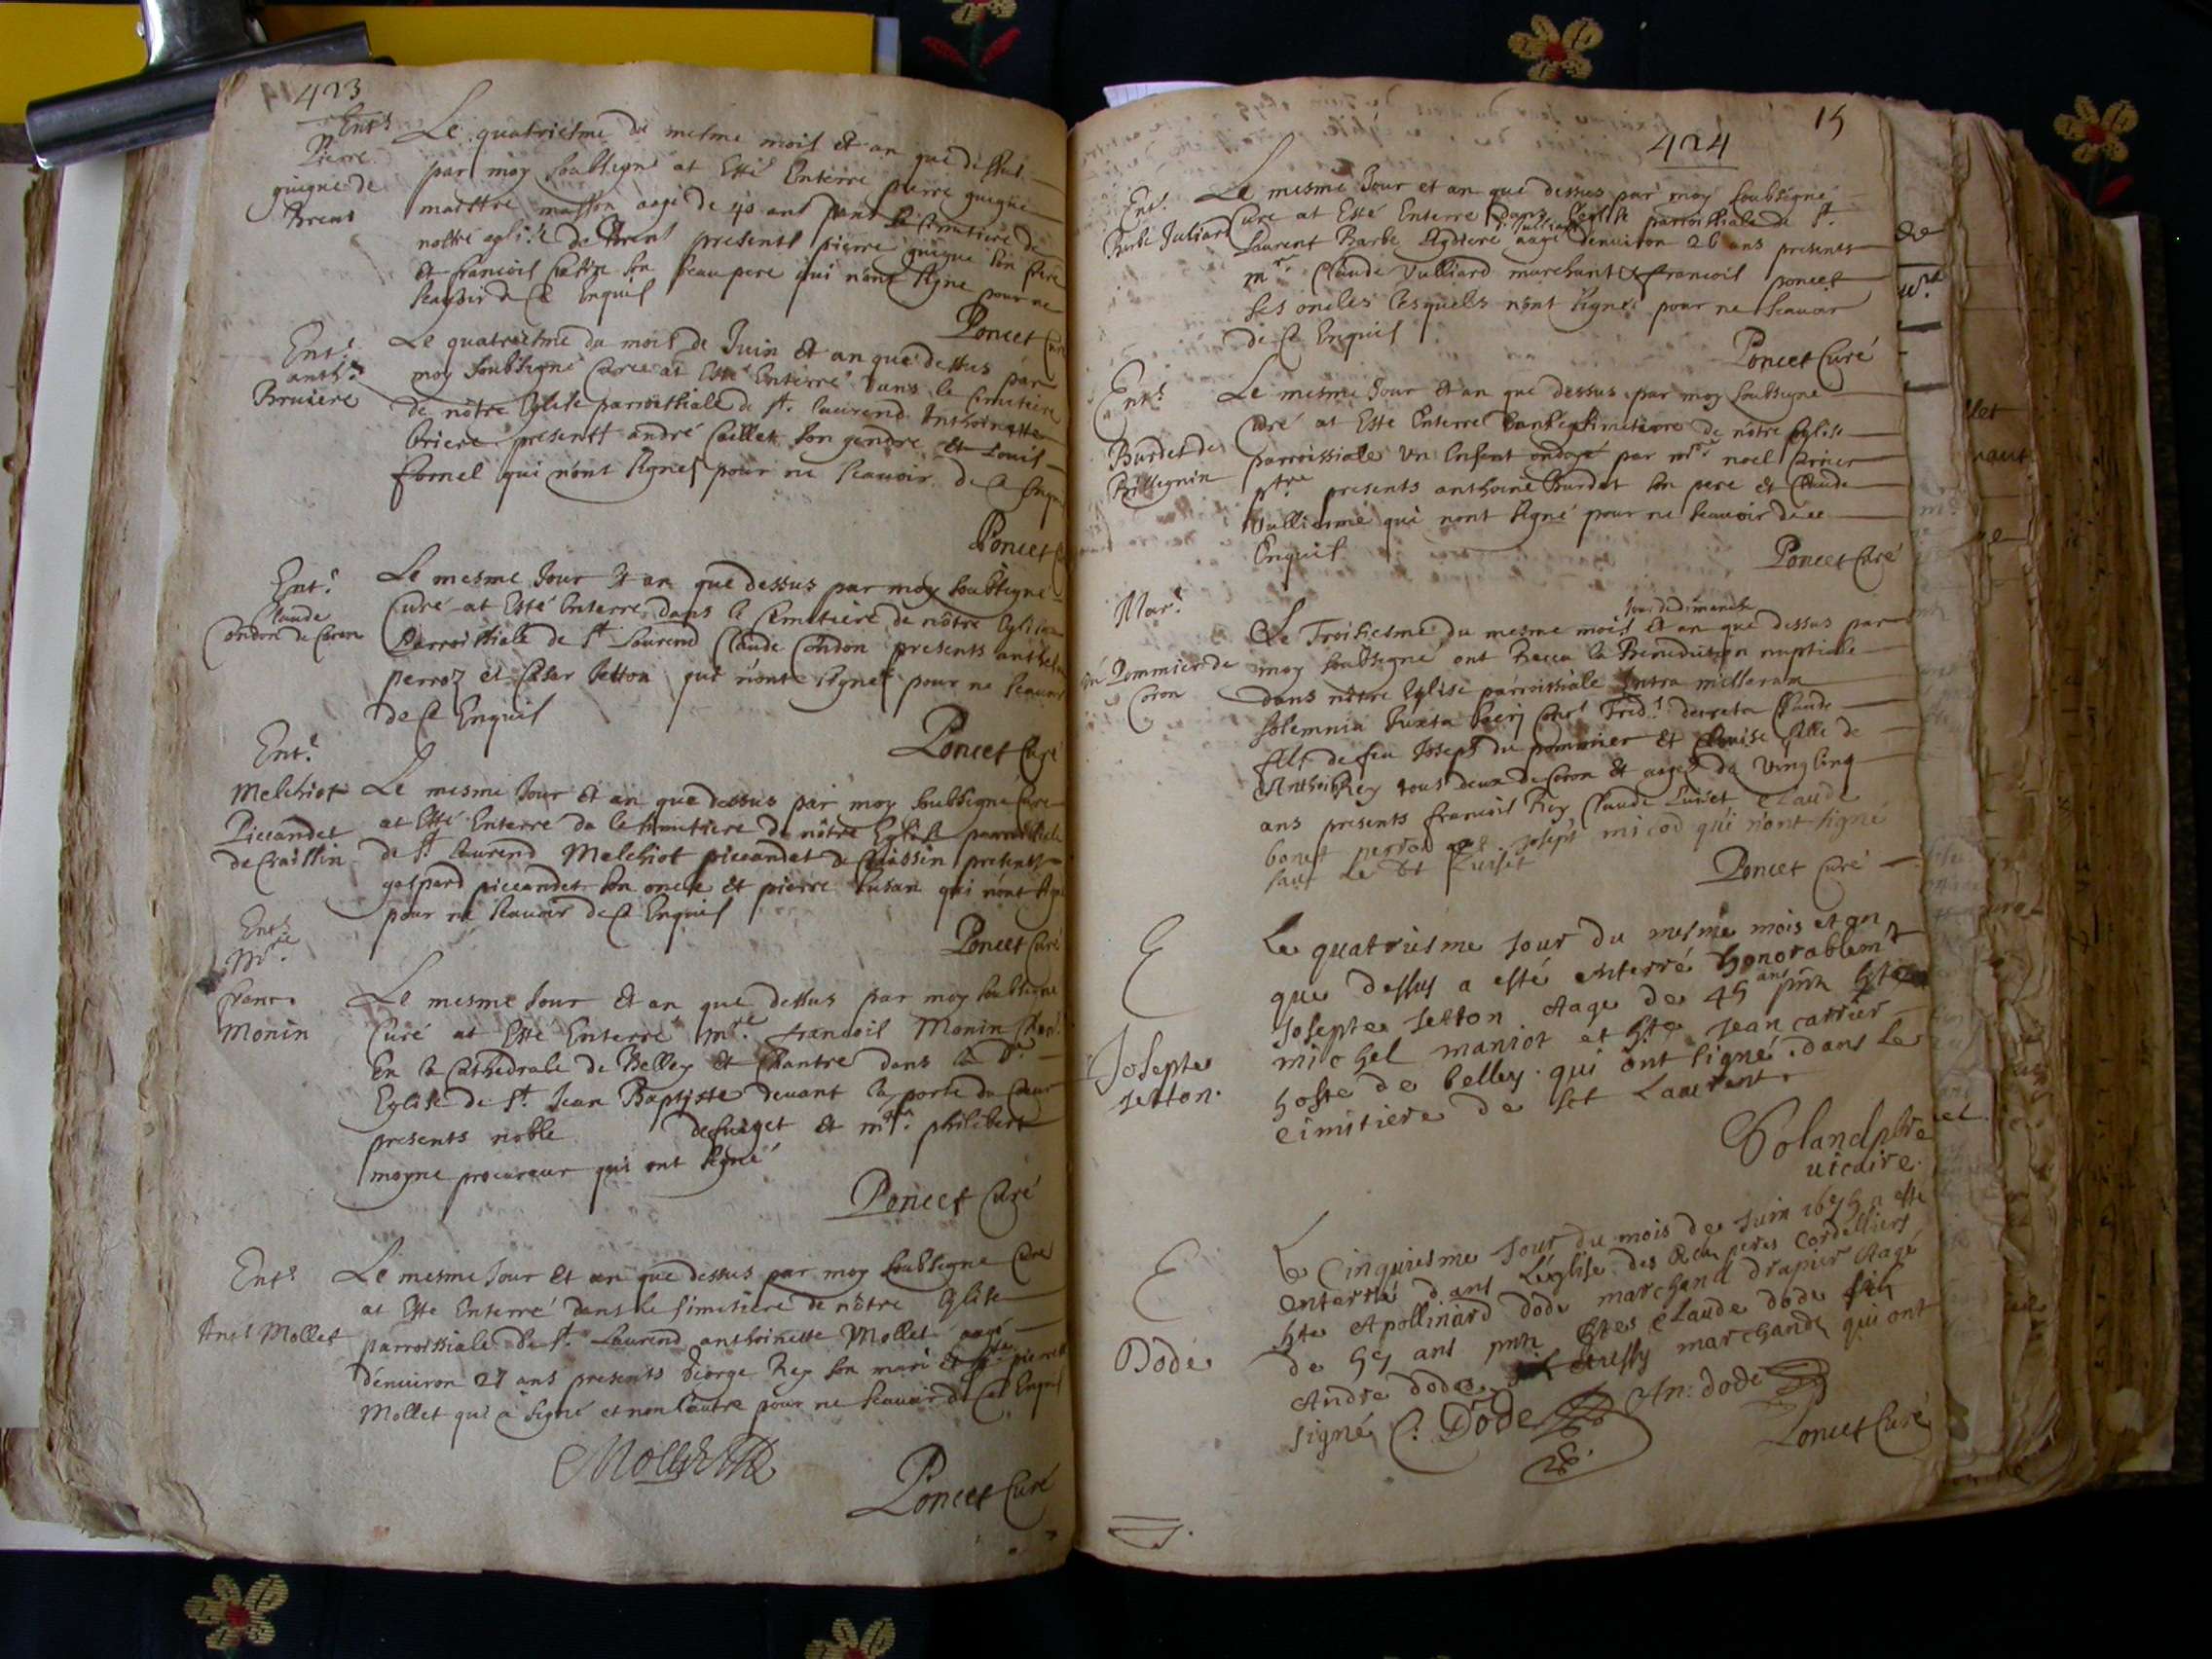 423
Ent.
Pierre
guigue de
Brens
Le quatriesme du mesme mois et an que dessus
par moy soubsigné at Esté Enterré pierre guigue
maistre masson aagé de 40 ans dans le Cimetiere de
nostre eglise de Brens presents pierre guigue son frere
et francois son beaupere qui n'ont signé pour ne
scavoir de ce Enquis
Poncet Curé
Ent.
anth.
Bruiere
Le quatriesme du mois de Juin Et an que dessus par
moy soubsigné Curé at Esté Enterré dans le Cimetiere
de nôtre Eglise parroissiale de st. laurend Anthoinette
briere presents andré Caillet son gendre et Louis
fornel qui n'ont signés pour ne scavoir de ce Enquis
Poncet
Ent.
Claude
Condon de Coron
Le mesme Jour Et an que dessus par moy soubsigné
Curé at Esté Enterré dans le Cemetiere de nôtre Eglise
Parroissiale de st Laurend Claude Condon presents anthel
perroz et Cesar Jetton qui n'ont signés pour ne scavoir
de ce Enquis
Poncet Curé
Ent.
Melchiot
Piccandet
de Craissin
Le mesme Jour Et an que dessus par moy soubsigné Curé
at Esté Enterré da le simetiere de nôtre Eglise parroissiale
de st laurend Melchiot piccandet de Craissin presents
gaspard piccandet son oncle et pierre Susan qui n'ont signé
pour ne scavoir de ce Enquis
Poncet Curé
Ent.
Mre
franc.
Monin
Le mesme Jour Et an que dessus par moy soubsigné
Curé at Esté Enterré mre. francois Monin
En la Cathedrale de Belley et Chantre dans la de.
Eglise de st. Jean Baptiste devant la porte du Cœur
presents noble defuiget et mre. philibert
moyne procureur qui ont signé
Poncet Curé
Ent.
Ant. Mollet
Le mesme Jour et an que dessus par moy soubsigné Curé
at Esté Enterré dans le simetiere de nôtre Eglise
parroissiale de st. Laurend anthoinette Mollet aagé
d'environ 27 ans presents George Rey son mari et pierre
Mollet qui a signé et non l'autre pour ne scavoir de ce Enquis
Mollet
Poncet Curé
15
424
Ent.
Barbe Juliard
Le mesme Jour et an que dessus par moy soubsigné
Curé at Esté Enterré dans l'eglise parroissiale de st.
Laurent Barbe aagé denviron 26 ans presents
mre. Claude Vulliard marchant et francois poncet
ses oncles lesquels n'ont signés pour ne scavoir
de ce Enquis
Poncet Curé
Ent.
Burdet de
Billegnin
Le mesme Jour et an que dessus par moy soubsigné
Curé at Esté Enterré dans le simetiere de nôtre Eglise
parroissiale Un Enfant ondoyé par mre. noel Carrier
ptre presents anthoine Burdet son pere et Claude
Vullierme qui nont signé pour ne scavoir de ce
Enquis
Poncet Curé
Mar.
Pommier de
Coron
jour de dimanche
Le Troisiesme du mesme mois et an que dessus par
moy soubsigné ont Receu la Benediction nuptiale
dans nôtre Eglise parroissiale Intra missaram
solemnia Juxta sacri Conc. Trid. decreta Claude
fils de feu Joseph du pommier et Louise fille de
Anthoi Rey tous deux de Coron et aagés de Vingt cinq
ans presents francois Rey Claude Luiset Claude
bonet perrod Joseph micod qui n'ont signé
sauf le dt Luiset
Poncet Curé
E
Josepte
Jetton.
Le quatriesme jour du mesme mois et an
que dessus a esté enterré honorablemt
Josepte Jetton aage de 45 ans pnts hte
michel maniot et hte Jean carrier
hoste de belley. qui ont signé. dans le
cimitiere de sct Laurent.
Roland pbre et
vicaire.
E
Dode
Le Cinquiesme jour du mois de Juin 1675 a esté
enterré dans L'eglise des Rds peres Cordelliers
hte Apollinard dode marchand drapier Aagé
de 55 ans pnts htes claude dode
Andre dode marchands qui ont
signé C. Dode An: dode
Poncet Curé